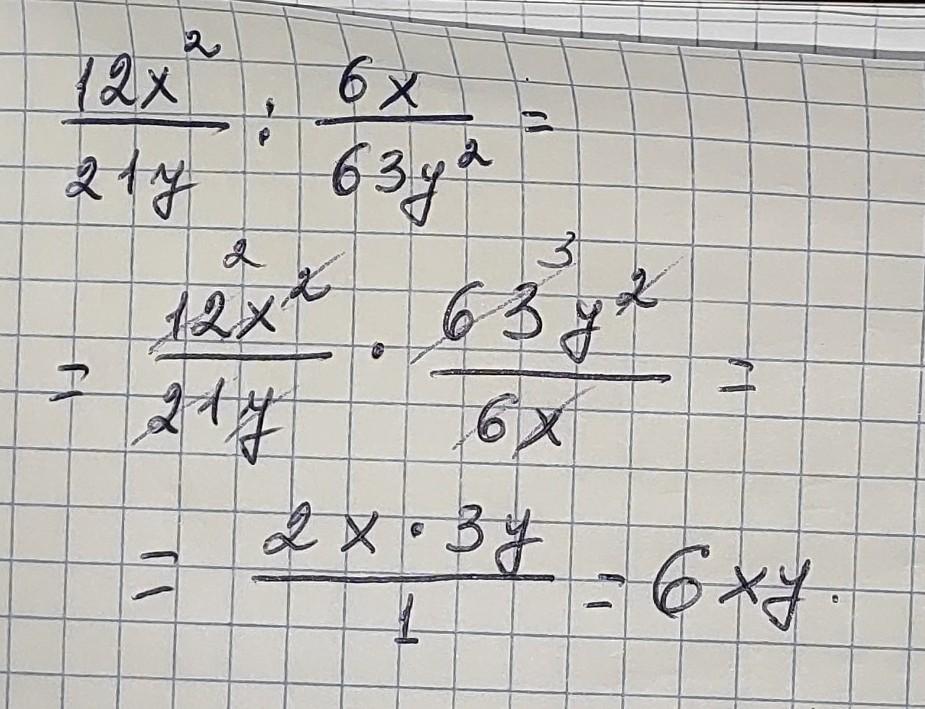 12x²/21y : 6x/63y² =
= 12x²/21y · 63y²/6x = 2 3
= 2x·3y/1 = 6xy.